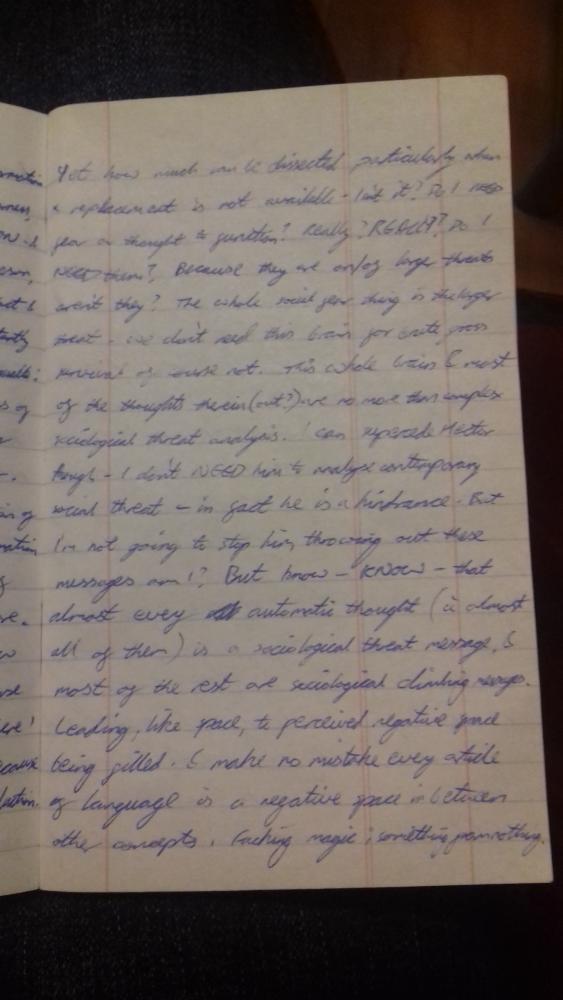 Yet how much can be dissected particularly when
a replacement is not available - isn't it? Do I NEED
fear or thought to function? Really? REALLY? Do I
NEED them? Because they are only larger threats
aren't they? The whole social fear thing is the larger
threat - we don't need this brain for brute gross
survival of course not. This whole brain & most
of the thoughts therein (out?) are no more than complex
sociological threat analysis. I can supercede Hector
though - I don't NEED him to analyse contemporary
social threat - in fact he is a hindrance. But
I'm not going to stop him throwing out these
messages am I? But know - KNOW - that
almost every automatic thought (ie almost
all of them) is a sociological threat message, &
most of the rest are sociological climbing messages.
Leading, like space, to perceived negative space
being filled. & make no mistake every article
of language is a negative space in between
other concepts. Fucking magic; something from nothing.
ere!
ecause